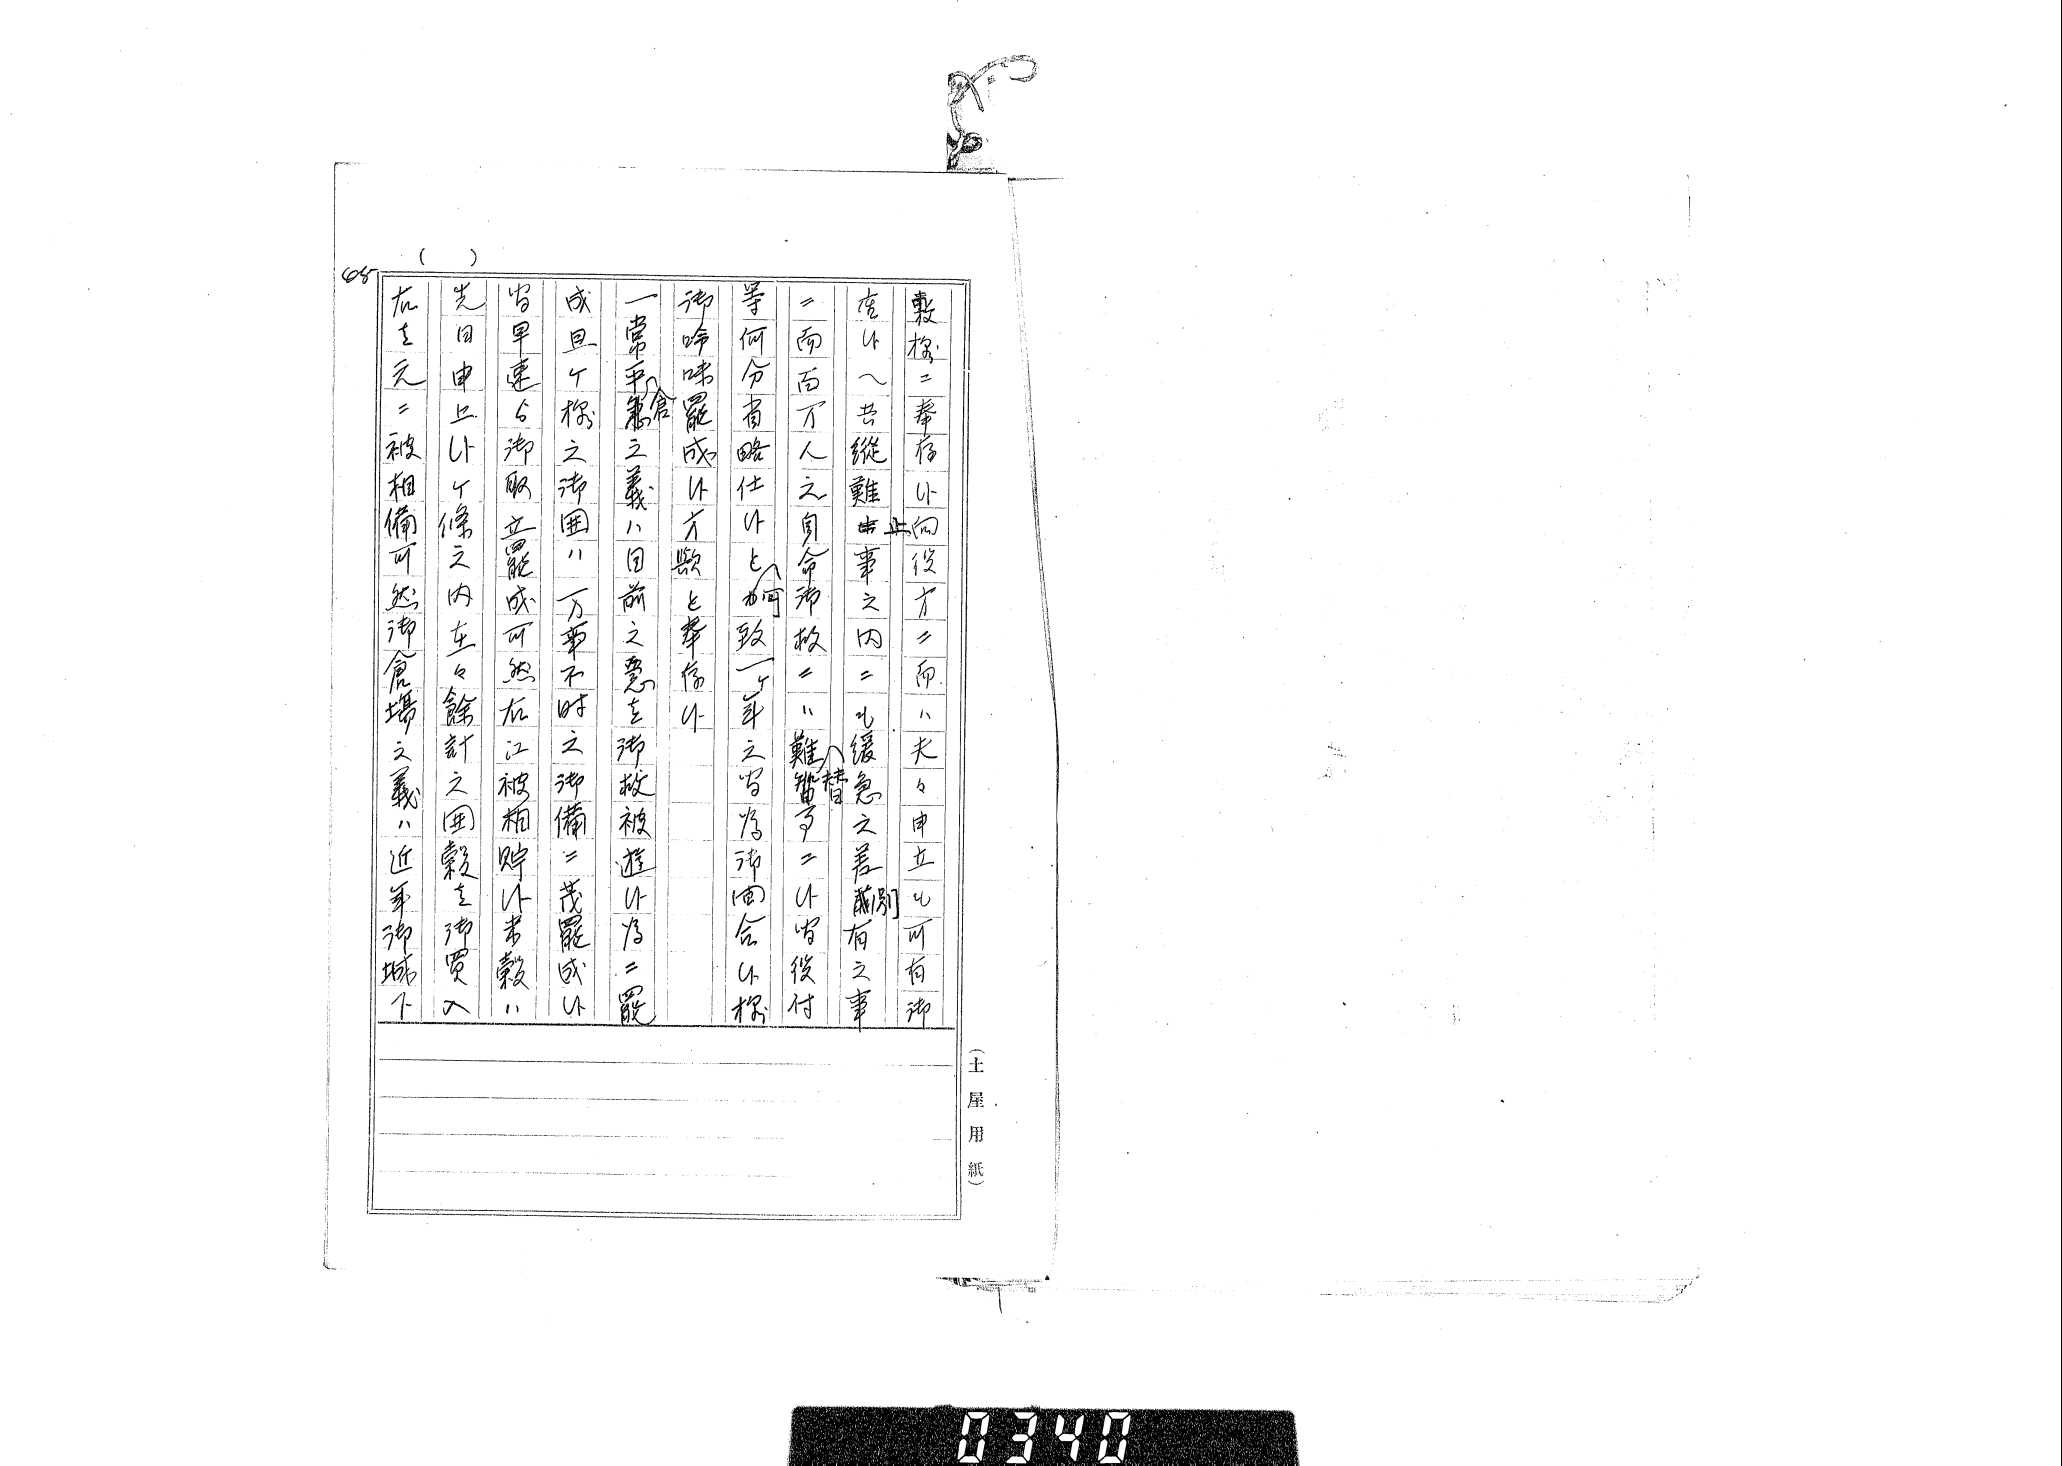 ( )
68
敷様ニ奉存候向役方ニ而ハ夫々申立も可有御
座候へ共縦難止事之内ニも緩急之差別有之事
ニ而百万人之身命御救ニハ難替事ニ候皆役付
等何分省略仕候と何致一ヶ年之皆為御間合候様
御吟味罷成候方歟と奉存候
一常平倉之義ハ目前之急を御救被遊候為ニ罷
成且ヶ様之御囲ハ万事不時之御備ニ茂罷成候
皆早速ゟ御取立罷成可然右江被相貯候米穀ハ
先日申上候ヶ條之内在々餘計之囲穀を御買入
右を元ニ被相備可然御倉場之義ハ近年御城下
(土屋用紙)
0340